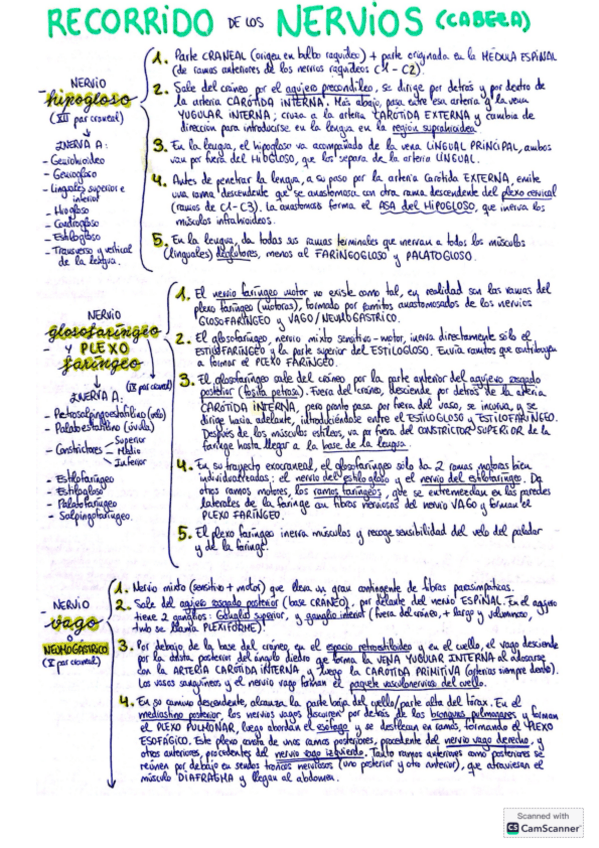 RECORRIDO DE LOS NERVIOS (CABEZA)
- NERVIO
hipogloso
(XII par craneal)
INERVA A:
- Geniohioideo
- Geniogloso
- Linguales superior e
inferior
- Hiogloso
- Condrogloso
- Estilogloso
- Transverso y vertical
de la lengua.
1. Parte CRANEAL (origen en bulbo raquídeo) + parte originada en la MÉDULA ESPINAL
(de ramas anteriores de los nervios raquídeos C1 - C2).
2. Sale del cráneo por el agujero precondíleo, se dirige por detrás y por dentro de
la arteria CARÓTIDA INTERNA. Más abajo, pasa entre esa arteria y la vena
YUGULAR INTERNA; cruza a la arteria CARÓTIDA EXTERNA y cambia de
dirección para introducirse en la lengua en la región suprahioidea.
3. En la lengua, el hipogloso va acompañado de la vena LINGUAL PRINCIPAL, ambos
van por fuera del HIOGLOSO, que los separa de la arteria LINGUAL.
4. Antes de penetrar la lengua, a su paso por la arteria Carótida EXTERNA, emite
una rama descendente que se anastomosa con otra rama descendente del plexo cervical
(ramos de C1 - C3). La anastomosis forma el ASA del HIPOGLOSO, que inerva los
músculos infrahioideos.
5. En la lengua, da todas sus ramas terminales que inervan a todos los músculos
(linguales) deglutores, menos al FARINGOGLOSO y PALATOGLOSO.
NERVIO
glosofaríngeo
- y PLEXO
faríngeo
(IX par craneal)
INERVA A:
- Periestafilino (velo)
- Palatoestafilino (úvula)
- Constrictores Superior
Medio
Inferior
- Estilofaríngeo
- Estilogloso
- Palatofaríngeo
- Salpingofaríngeo.
1. El nervio faríngeo motor no existe como tal, en realidad son las ramas del
plexo faríngeo (motoras), formado por ramitos anastomosados de los nervios
GLOSOFARÍNGEO y VAGO/NEUMOGÁSTRICO.
2. El glosofaríngeo, nervio mixto sensitivo - motor, inerva directamente sólo el
ESTILOFARÍNGEO y la parte superior del ESTILOGLOSO. Envía ramitos que contribuyen
a formar el PLEXO FARÍNGEO.
3. El glosofaríngeo sale del cráneo por la parte anterior del agujero rasgado
posterior (fosita petrosa). Fuera del cráneo, desciende por detrás de la arteria
CARÓTIDA INTERNA, pero pronto pasa por fuera del vaso, se incurva, y se
dirige hacia adelante, introduciéndose entre el ESTILOGLOSO y ESTILOFARÍNGEO.
Después de los músculos estíleos, va por fuera del CONSTRICTOR SUPERIOR de la
faringe hasta llegar a la base de la lengua.
4. En su trayecto exocraneal, el glosofaríngeo sólo da 2 ramas motoras bien
individualizadas: el nervio del estilogloso y el nervio del estilofaríngeo. Da
otros ramos motores, los ramos faríngeos, que se entremezclan en las paredes
laterales de la faringe con fibras nerviosas del nervio VAGO y forman el
PLEXO FARÍNGEO.
5. El plexo faríngeo inerva músculos y recoge sensibilidad del velo del paladar
y de la faringe.
- NERVIO
vago
o
NEUMOGÁSTRICO
(X par craneal)
1. Nervio mixto (sensitivo + motor) que lleva un gran contingente de fibras parasimpáticas.
2. Sale del agujero rasgado posterior (base CRÁNEO), por delante del nervio ESPINAL. En el agujero
tiene 2 ganglios: Ganglio superior, y ganglio inferior (fuera del cráneo, + largo y voluminoso,
tmb se llama PLEXIFORME).
3. Por debajo de la base del cráneo, en el espacio retroestiloideo y en el cuello, el vago desciende
por la arista posterior del ángulo diedro que forma la VENA YUGULAR INTERNA al adosarse
con la ARTERIA CARÓTIDA INTERNA y luego la CARÓTIDA PRIMITIVA (arterias siempre dentro).
Los vasos sanguíneos y el nervio vago forman el paquete vasculonervioso del cuello.
4. En su camino descendente, alcanza la parte baja del cuello/parte alta del tórax. En el
mediastino posterior, los nervios vagos discurren por detrás de los bronquios pulmonares y forman
el PLEXO PULMONAR, luego abordan el esófago y se desflecan en ramas, formando el PLEXO
ESOFÁGICO. Este plexo consta de unas ramas posteriores, procedente del nervio vago derecho, y
otras anteriores, procedentes del nervio vago izquierdo. Tanto ramas anteriores como posteriores se
reúnen por debajo en sendos troncos nerviosos (uno posterior y otro anterior), que atraviesan el
músculo DIAFRAGMA y llegan al abdomen.
Scanned with
CS CamScanner